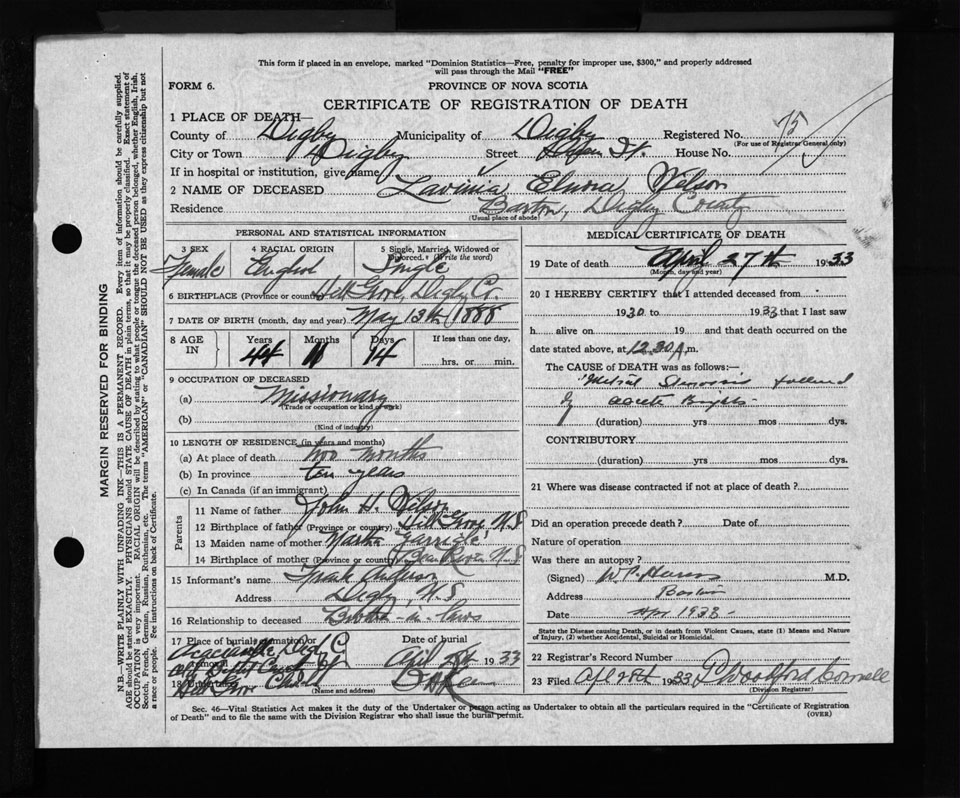 This form if placed in an envelope, marked "Dominion Statistics—Free, penalty for improper use, $300," and properly addressed
will pass through the Mail "FREE"
FORM 6.
PROVINCE OF NOVA SCOTIA
CERTIFICATE OF REGISTRATION OF DEATH
1 PLACE OF DEATH—
County of Digby Municipality of Digby Registered No. 75
(For use of Registrar General only)
City or Town Digby Street St. House No.
If in hospital or institution, give name
2 NAME OF DECEASED Lavinia Nelson
Residence Barton, Digby County
(Usual place of abode)
PERSONAL AND STATISTICAL INFORMATION
3 SEX 4 RACIAL ORIGIN 5 Single, Married, Widowed or
Divorced. (Write the word)
Female English Single
6 BIRTHPLACE (Province or country) Hill Grove, Digby Co.
7 DATE OF BIRTH (month, day and year) May 13th 1888
8 AGE IN Years Months Days If less than one day,
44 11 14 hrs. or min.
9 OCCUPATION OF DECEASED
(a) Missionary
(Trade or occupation or kind of work)
(b)
(Kind of industry)
10 LENGTH OF RESIDENCE (in years and months)
(a) At place of death two months
(b) In province ten years
(c) In Canada (if an immigrant)
Parents
11 Name of father John H. Nelson
12 Birthplace of father (Province or country) Hill Grove N.S
13 Maiden name of mother
14 Birthplace of mother (Province or country) Bear River N.S
15 Informant's name Frank
Address Digby, N.S
16 Relationship to deceased Brother-in-law
17 Place of burial, cremation or Date of burial
April 28 1933
(Name and address)
MEDICAL CERTIFICATE OF DEATH
19 Date of death April 27th 1933
(Month, day and year)
20 I HEREBY CERTIFY that I attended deceased from
1930 to 1933 that I last saw
h alive on 19 and that death occurred on
date stated above, at 12.30 A.m.
The CAUSE of DEATH was as follows:—
Mitral Stenosis followed
by acute Brights
(duration) yrs mos dys.
CONTRIBUTORY
(duration) yrs mos dys.
21 Where was disease contracted if not at place of death?
Did an operation precede death? Date of
Nature of operation
Was there an autopsy?
(Signed) M.D.
Address Barton
Date Apr 1933
State the Disease causing Death, or in death from Violent Causes, state (1) Means and Nature
of Injury, (2) whether Accidental, Suicidal or Homicidal.
22 Registrar's Record Number
23 Filed Apl 28th 1933 Woolford Connell
(Division Registrar)
Sec. 46—Vital Statistics Act makes it the duty of the Undertaker or person acting as Undertaker to obtain all the particulars required in the "Certificate of Registration
of Death" and to file the same with the Division Registrar who shall issue the burial permit.
(OVER)
MARGIN RESERVED FOR BINDING
N.B.—WRITE PLAINLY WITH UNFADING INK—THIS IS A PERMANENT RECORD. Every item of information should be carefully supplied.
AGE should be stated EXACTLY. PHYSICIANS should STATE CAUSE OF DEATH in plain terms, so that it may be properly classified. Exact statement of
OCCUPATION is very important. RACIAL ORIGIN will be described by stating to what people or tongue the deceased person belonged, whether English, Irish,
Scotch, French, German, Russian, Ruthenian, etc. The terms "AMERICAN" or "CANADIAN" SHOULD NOT BE USED as they express citizenship but not
a race or people. See instructions on back of Certificate.